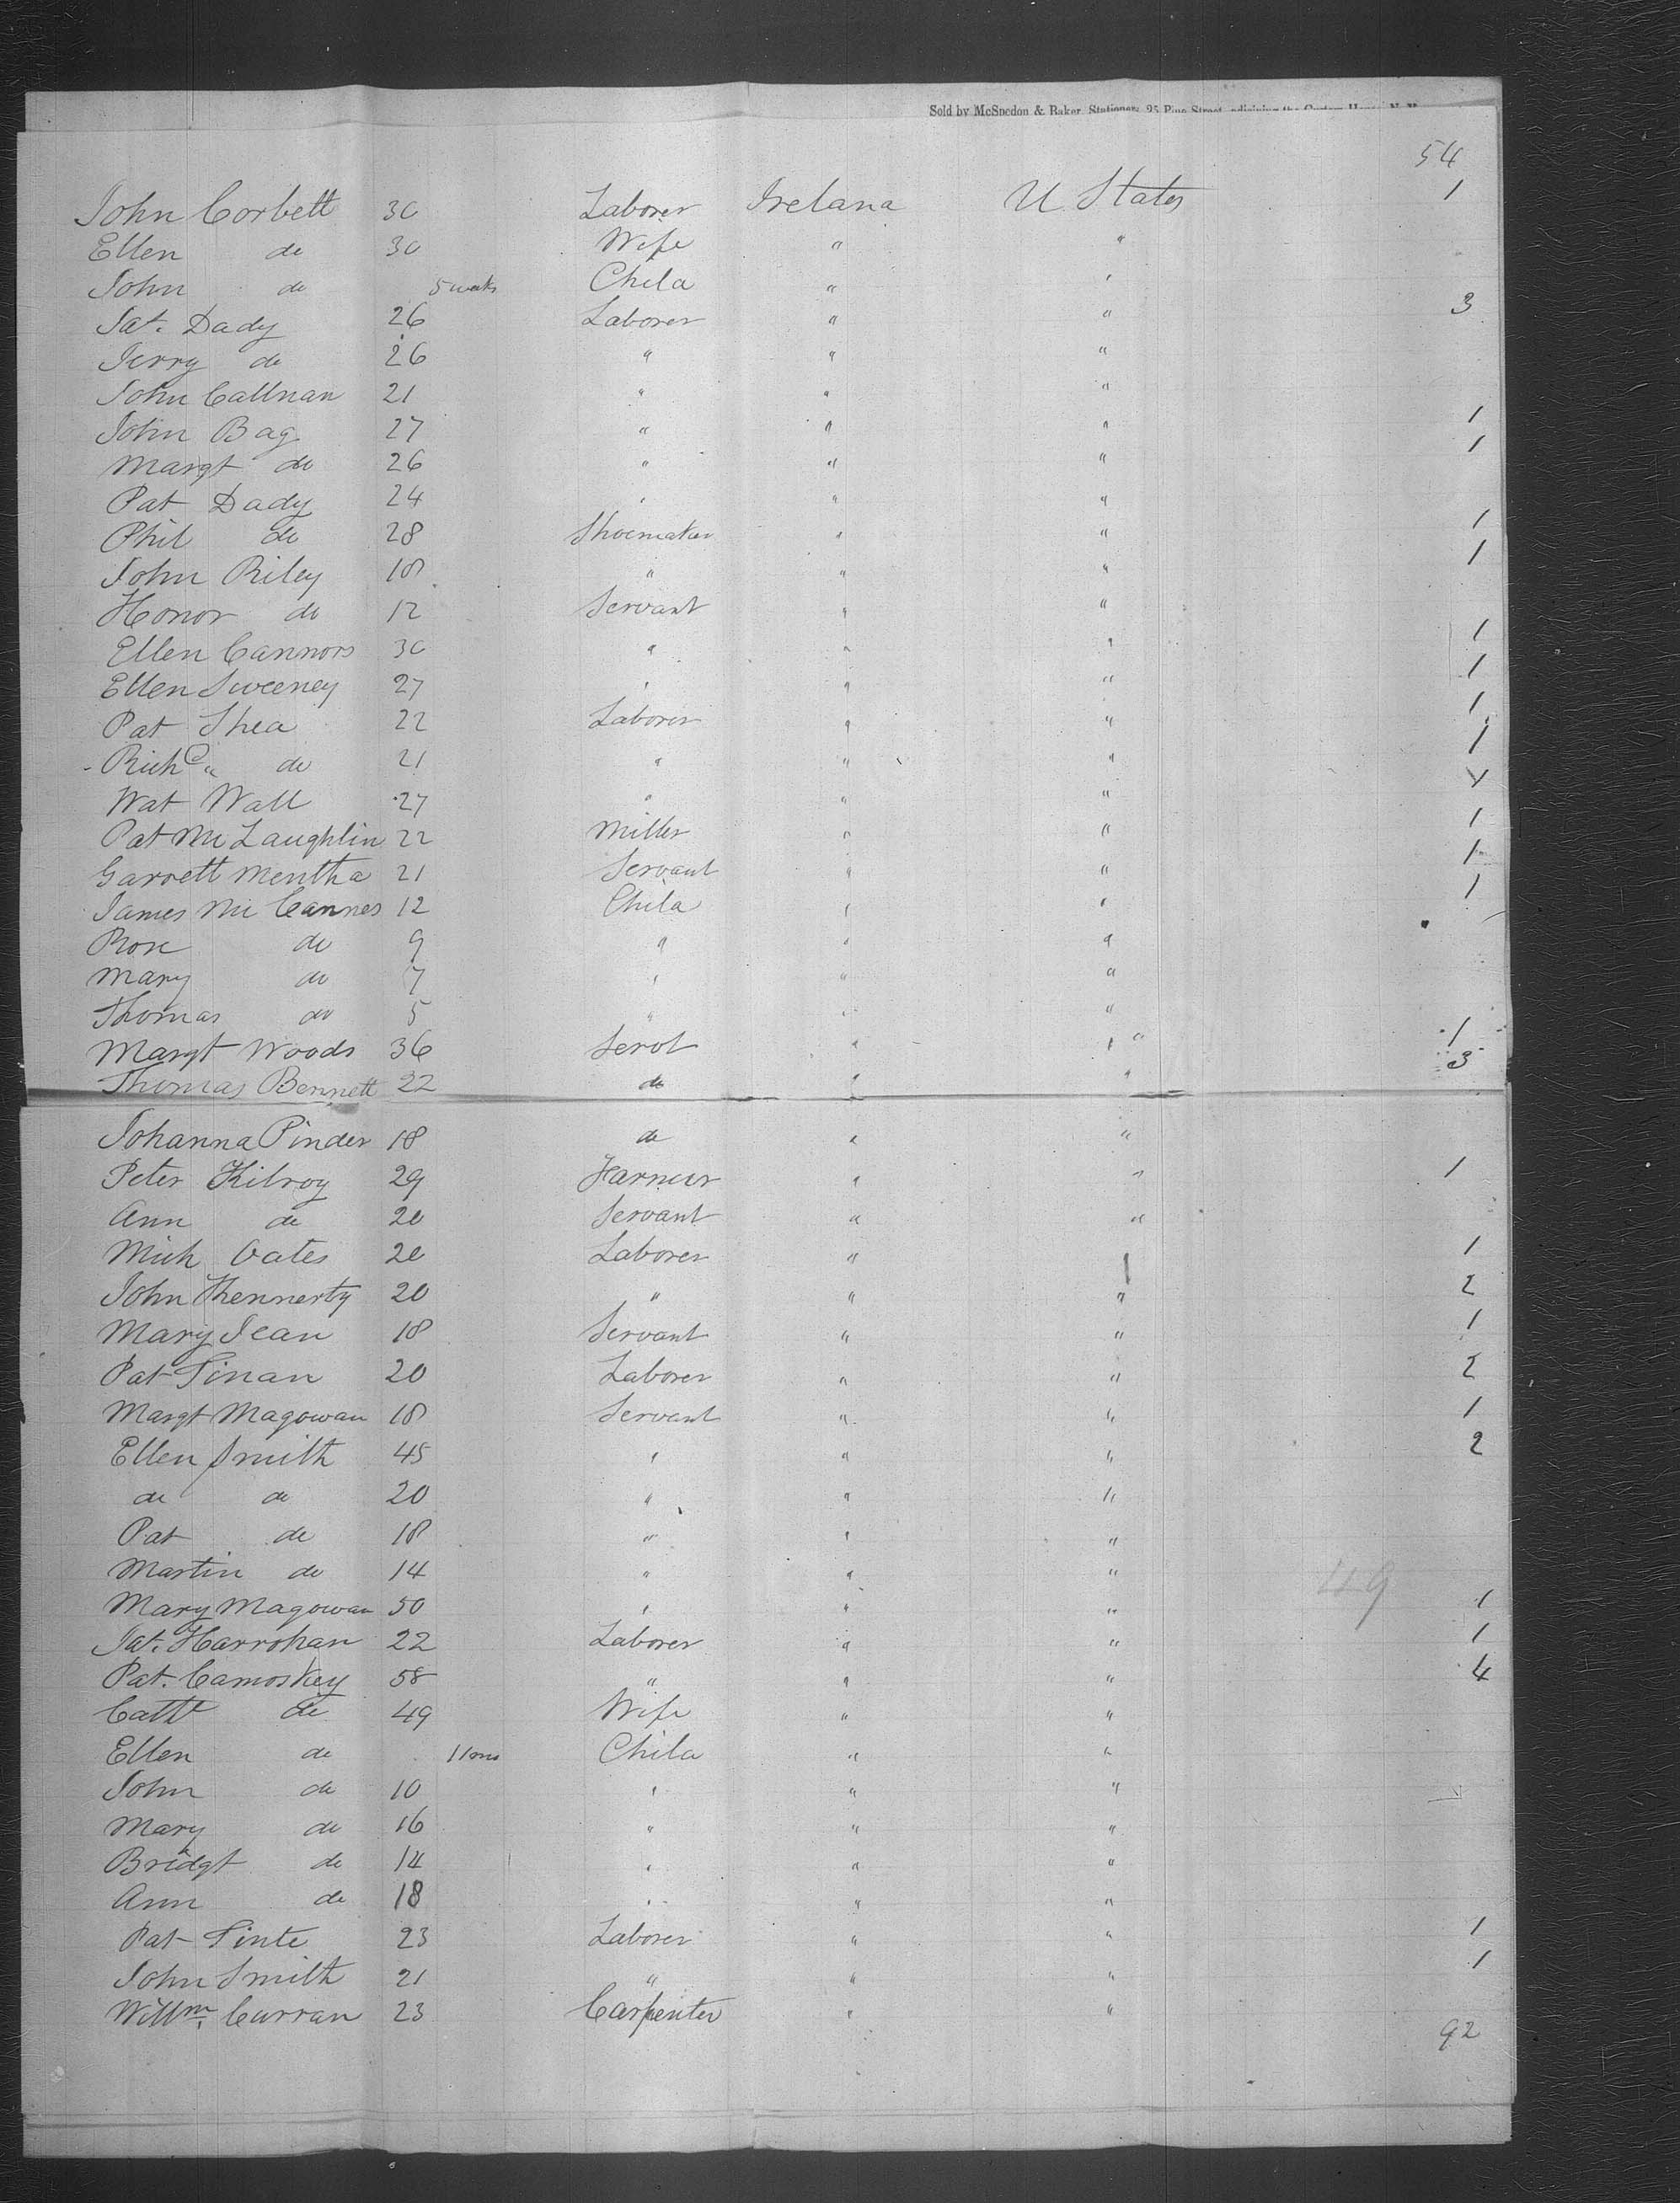 Sold by McSpedon & Baker, Stationers 25 Pine Street, adjoining the Custom House, N. Y.
54
John Corbett 30 Laborer Ireland U States 1
Ellen do 30 Wife " "
John do 5 weeks Child " "
Pat. Dady 26 Laborer " " 3
Jerry do 26 " " "
John Callnan 21 " " "
John Bag 27 " " " 1
Margt do 26 " " " 1
Pat Dady 24 " " "
Phil do 28 Shoemaker " " 1
John Riley 18 " " " 1
Honor do 12 Servant " "
Ellen Cannors 30 " " " 1
Ellen Sweeney 27 " " " 1
Pat Shea 22 Laborer " " 1
Richd " do 21 " " " 1
Wat Wall 27 " " "
Pat McLaughlin 22 Miller " " 1
Garrett Mentha 21 Servant " " 1
James Mc Cannes 12 Child " " 1
Rose do 9 " " "
Mary do 7 " " "
Thomas do 5 " " "
Margt Woods 36 Servt " " 1
Thomas Bennett 22 do " " 3
Johanna Pinder 18 do " "
Peter Kilroy 29 Farmer " " 1
Ann do 20 Servant " "
Mich Oates 20 Laborer " 1
John Hennerty 20 " " " 2
Mary Jean 18 Servant " " 1
Pat Finan 20 Laborer " " 2
Margt Magowan 18 Servant " " 1
Ellen Smith 45 " " " 2
do do 20 " " "
Pat do 18 " " "
Martin do 14 " " "
49
Mary Magowan 50 " " " 1
Pat. Harrohan 22 Laborer " " 1
Pat. Camoskey 58 " " " 4
Cathe do 49 Wife " "
Ellen do 11 ms Child " "
John do 10 " " "
Mary do 16 " " "
Bridgt do 14 " " "
Ann do 18 " " "
Pat Finte 23 Laborer " " 1
John Smith 21 " " " 1
Willm. Curran 23 Carpenter " "
92